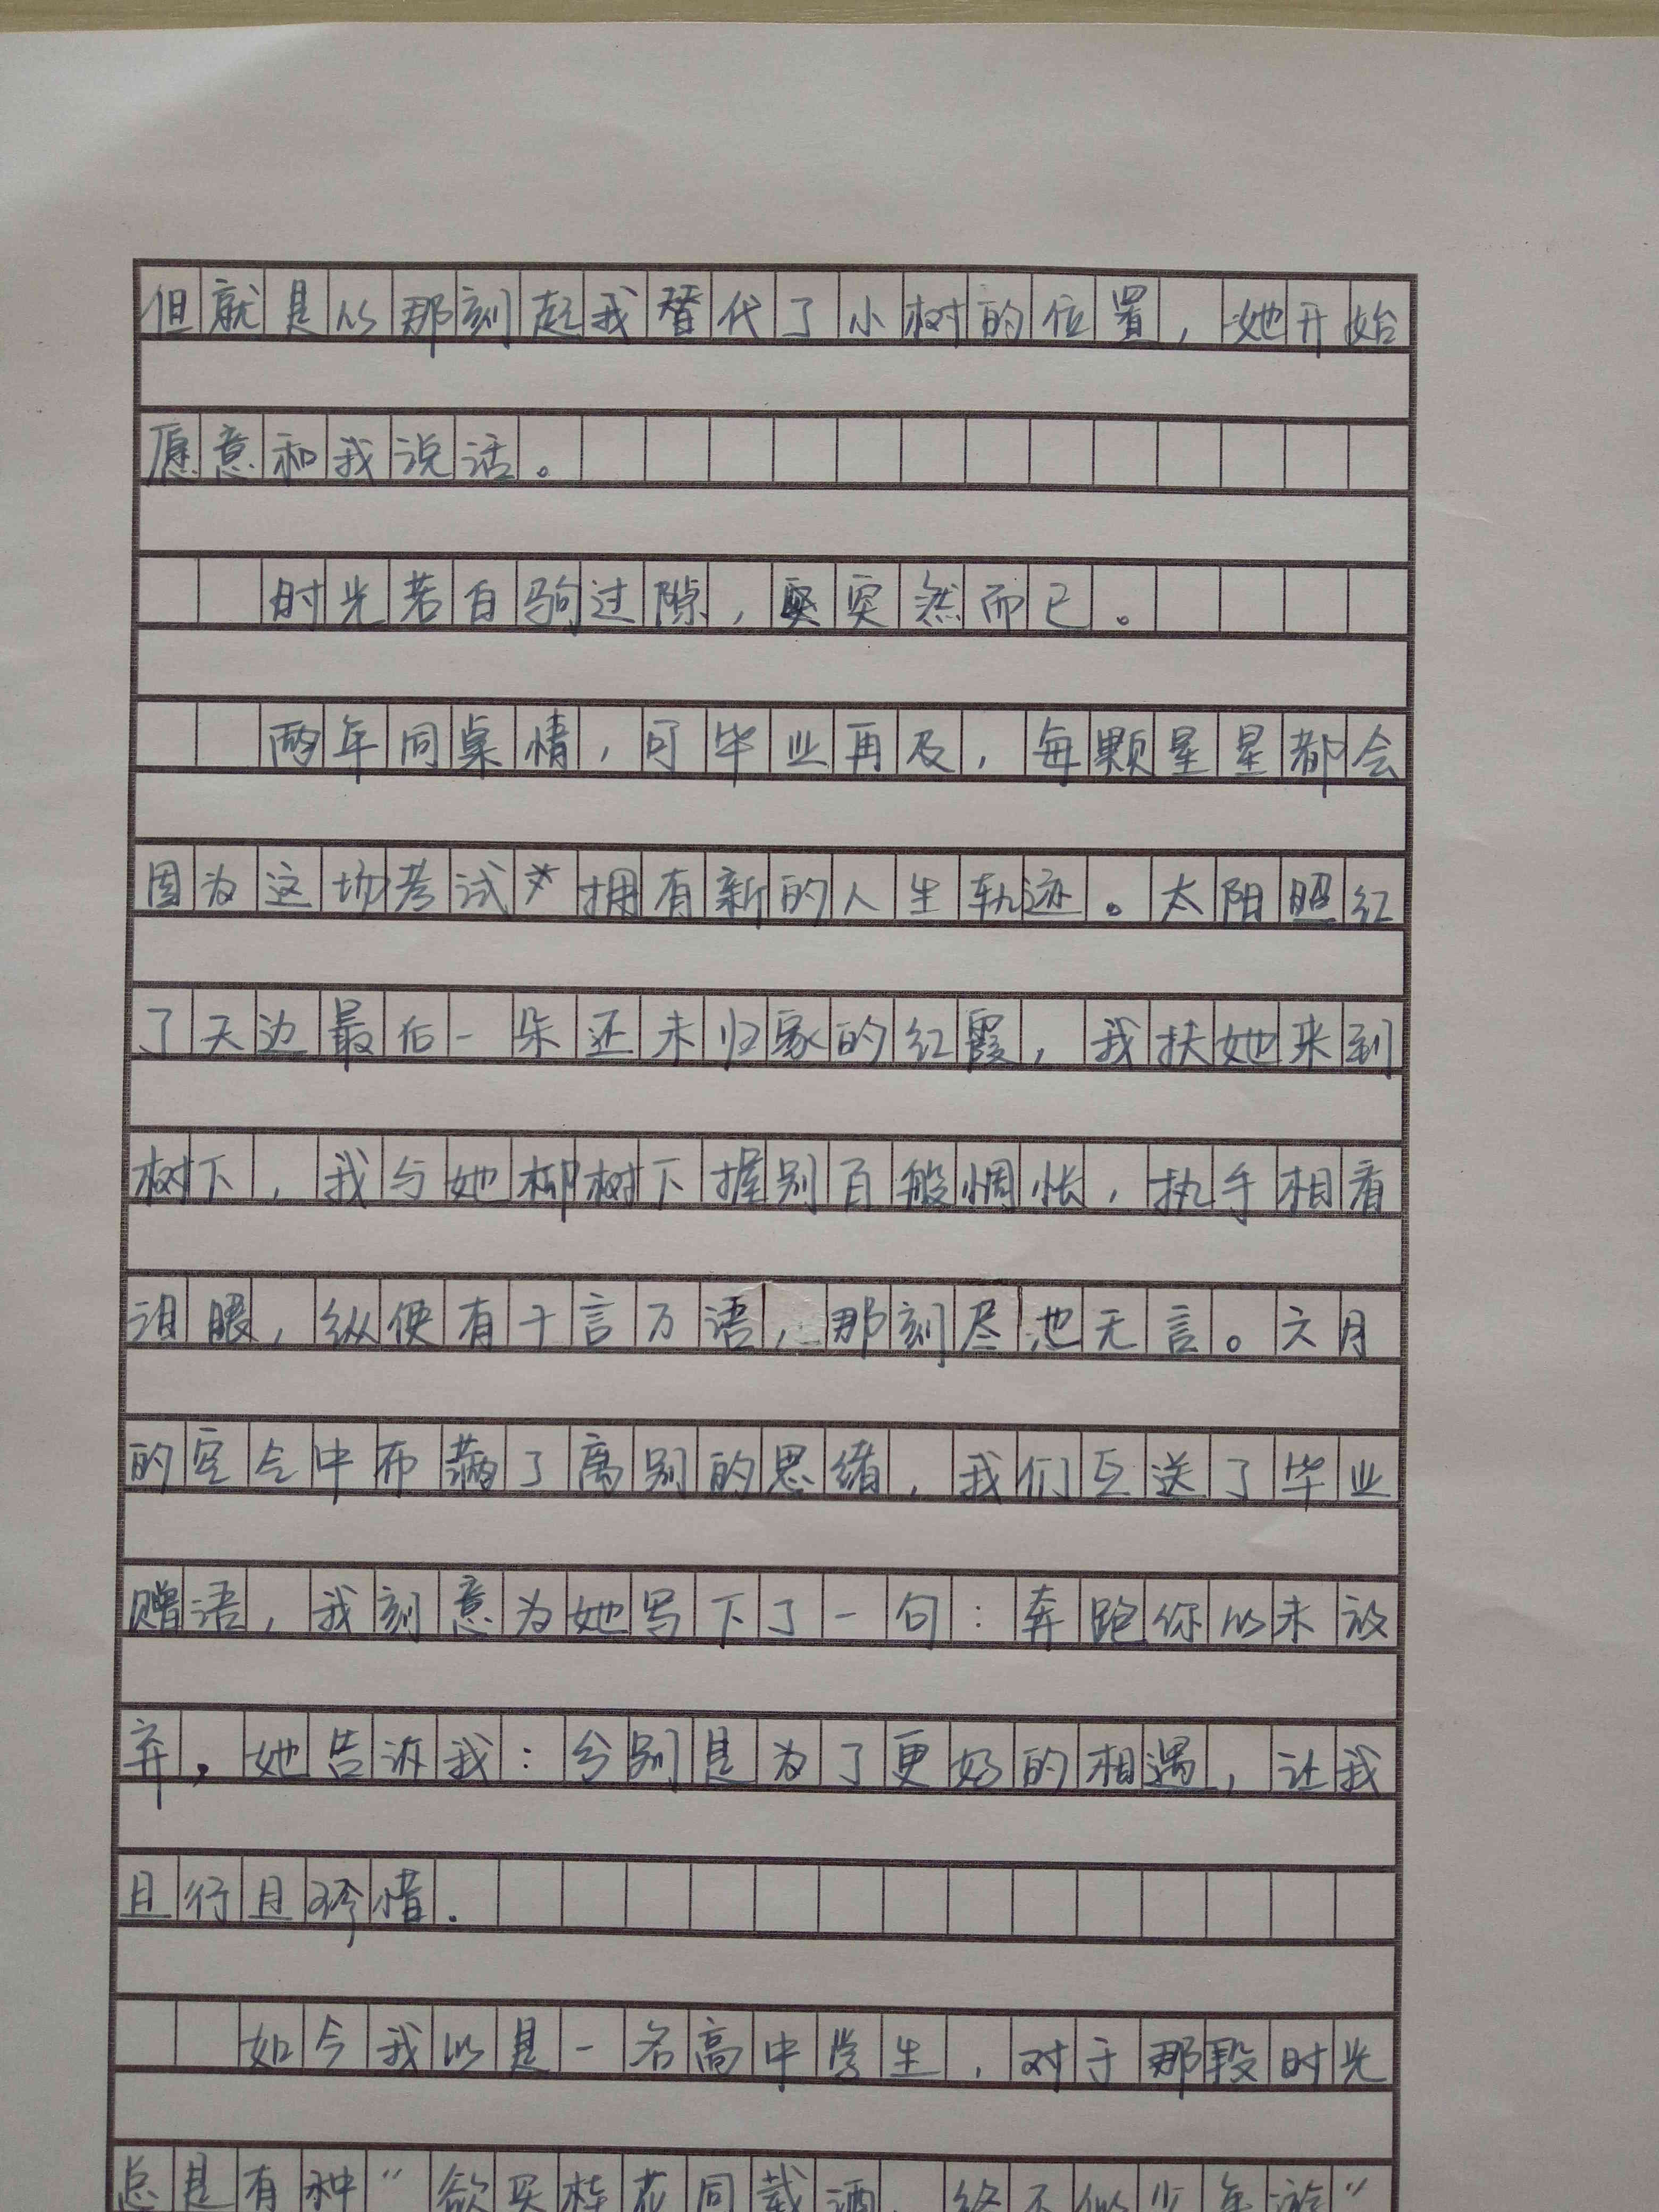 但就是以那刻起我替代了小树的位置，她开始
愿意和我说话。
时光若白驹过隙，突然而已。
两年同桌情，可毕业再及，每颗星星都会
因为这场考试拥有新的人生轨迹。太阳照红
了天边最后一朵还未归家的红霞，我扶她来到
树下，我与她柳树下握别百般惆怅，执手相看
泪眼，纵使有千言万语，那刻尽也无言。六月
的空气中布满了离别的思绪，我们互送了毕业
赠语，我刻意为她写下了一句：奔跑你以未放
弃，她告诉我：分别是为了更好的相遇，让我
且行且珍惜.
如今我以是一名高中学生，对于那段时光
总是有种“欲买桂花同载酒，终不似少年游”